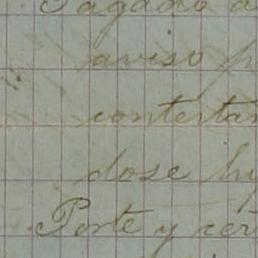 Pagado a
aviso p
contestan
dose hy
Porte y cer